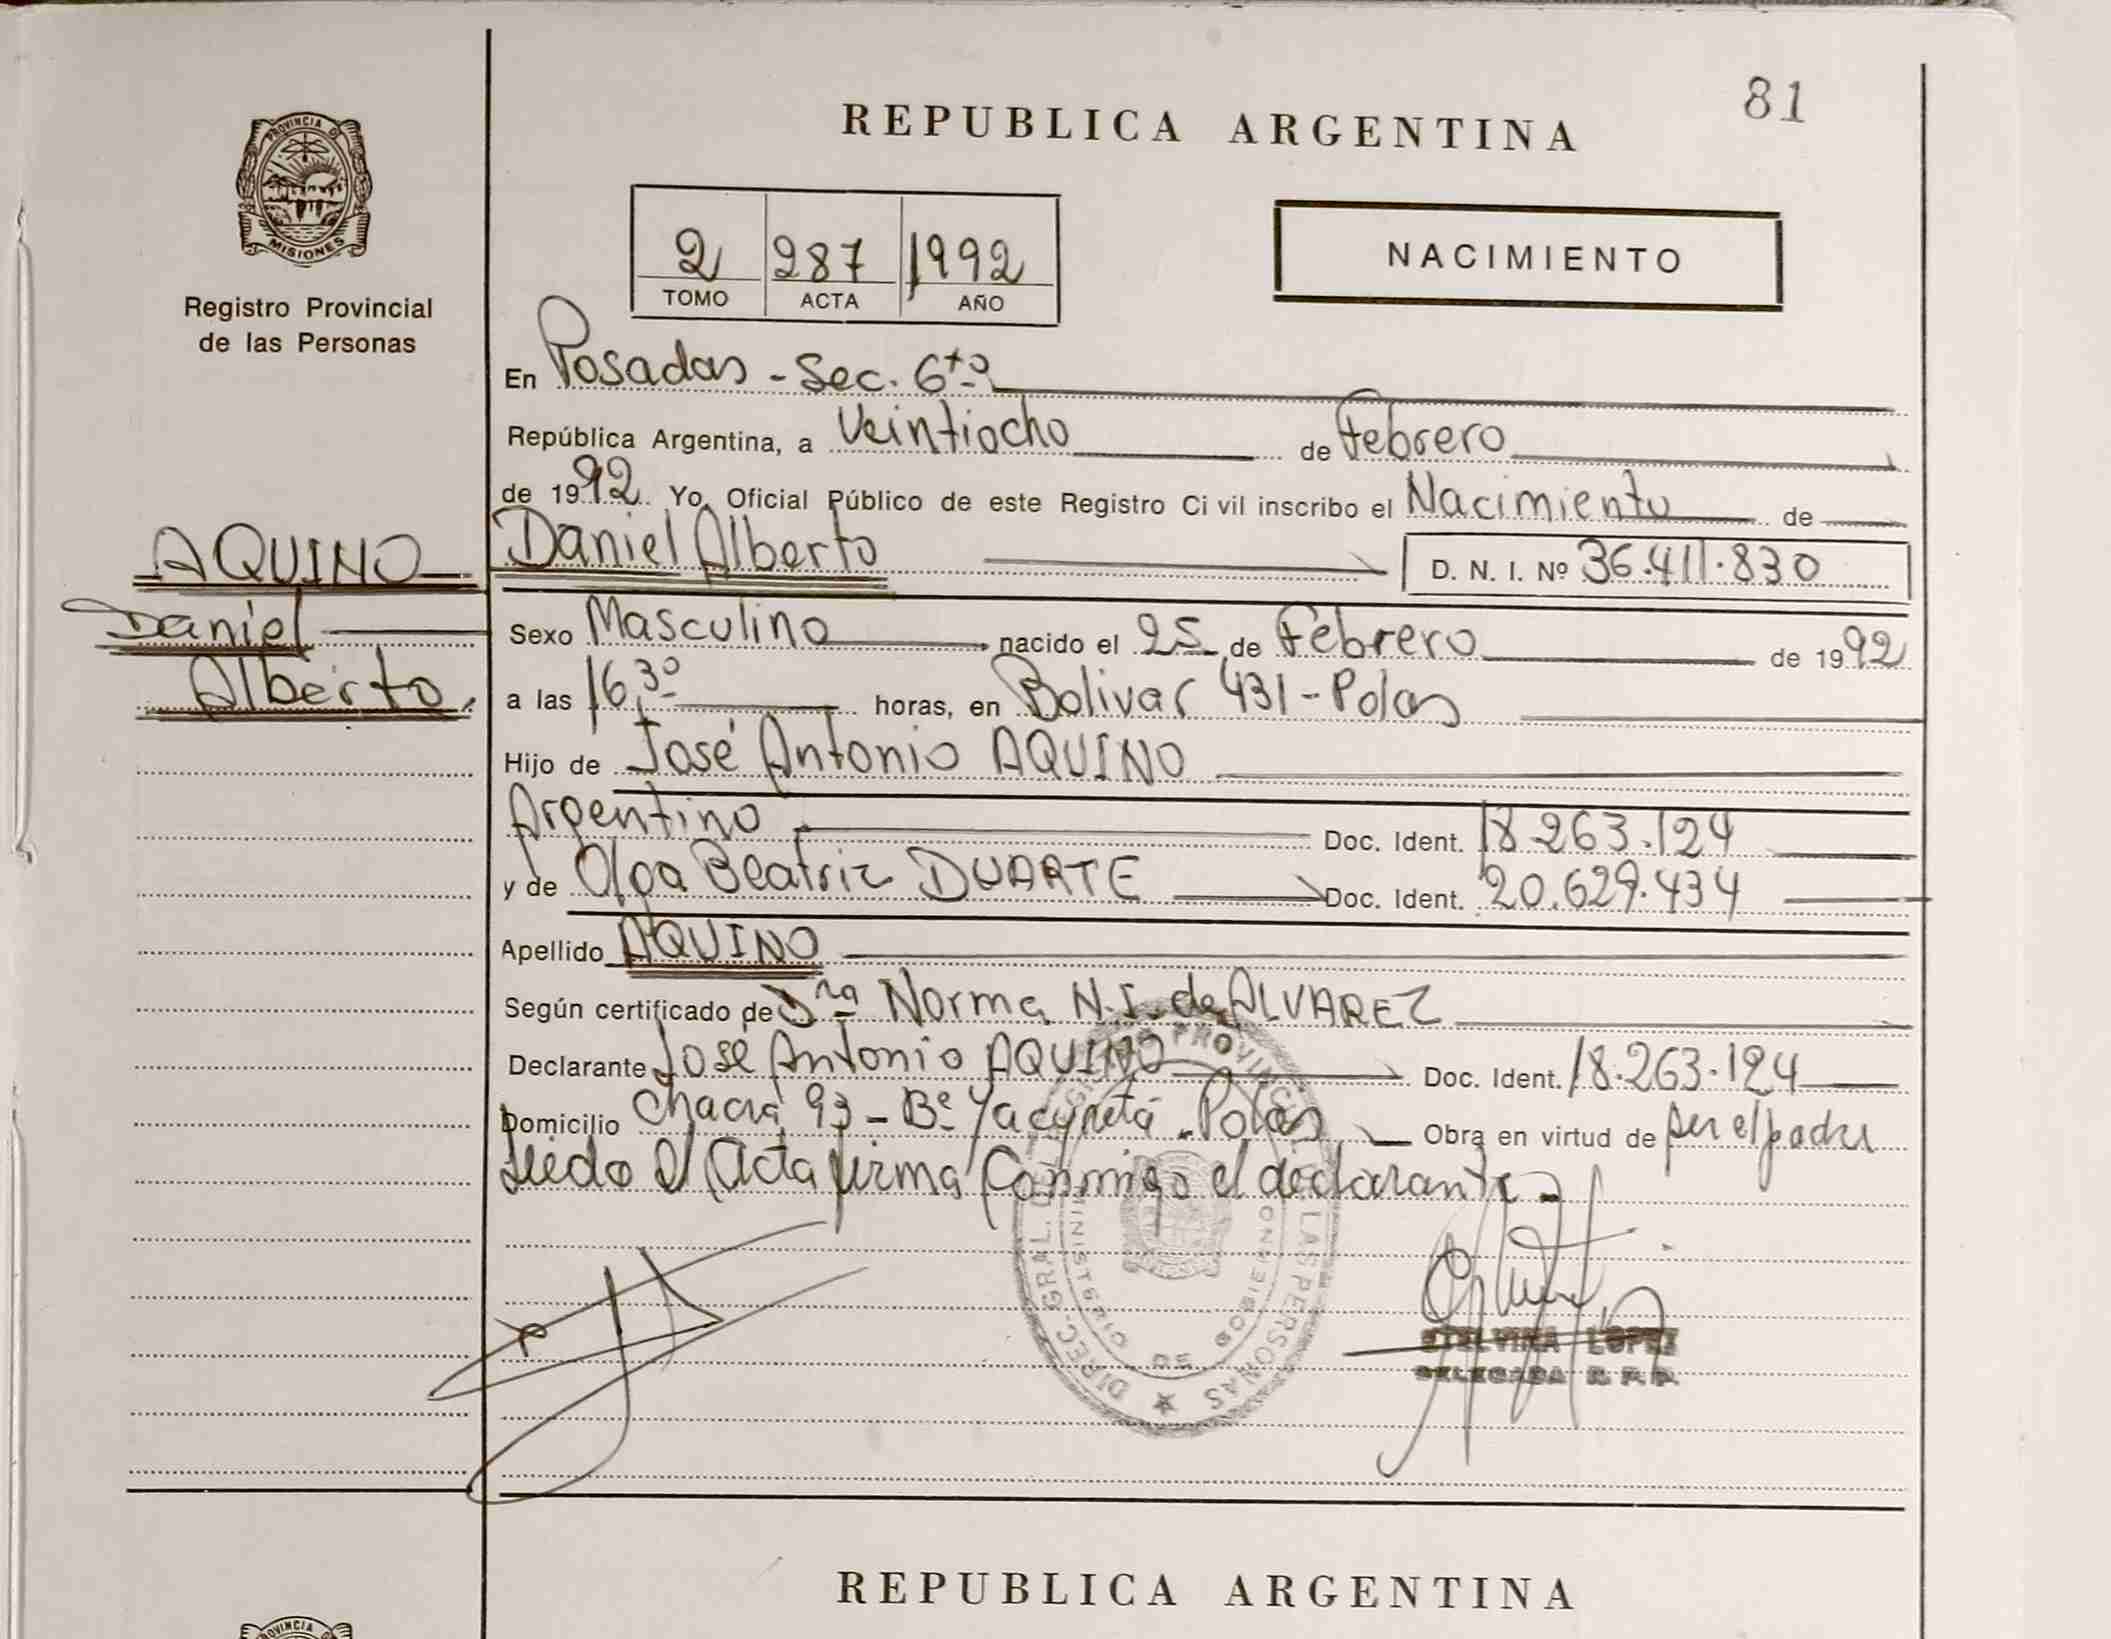 81
REPUBLICA ARGENTINA
PROVINCIA DE
MISIONES
Registro Provincial
de las Personas
2 287 1992
TOMO ACTA AÑO
NACIMIENTO
En Posadas - Sec. 6ta
República Argentina, a Veintiocho de Febrero
de 1992 Yo, Oficial Público de este Registro Civil inscribo el Nacimiento de
AQUINO
Daniel
Alberto.
Daniel Alberto D. N. I. Nº 36.411.830
Sexo Masculino nacido el 25 de Febrero de 1992
a las 16,30 horas, en Bolivar 431 - Pdas
Hijo de José Antonio AQUINO
Argentino Doc. Ident. 18.263.124
y de Olga Beatriz DUARTE Doc. Ident. 20.629.434
Apellido AQUINO
Según certificado de Dra Norma N. I. de ALVAREZ
Declarante José Antonio AQUINO Doc. Ident. 18.263.124
Domicilio Chacra 93 - Bº Yacyretá - Pdas Obra en virtud de ser el padre
Leído el Acta firma Conmigo el declarante -
DIREC. GRAL. PROVINCIAL LAS PERSONAS
MINISTERIO DE GOBIERNO
ETELVINA LOPEZ
DELEGADA R. P. P.
REPUBLICA ARGENTINA
PROVINCIA